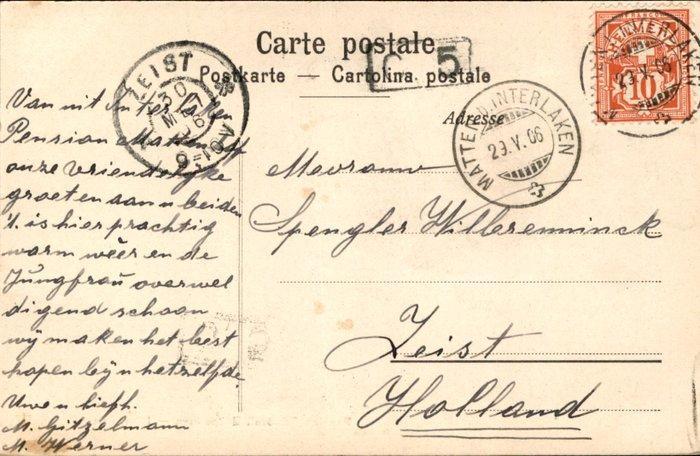 Carte postale
Postkarte — Cartolina postale
C 5
ZEIST
MATTEN B. INTERLAKEN
29.V.06
10
Adresse
Van uit Interlaken
Pension Mattenhof
onze vriendelijke
groeten aan u beiden
't is hier prachtig
warm wéer en de
Jungfrau overwel
digend schoon
wij maken het best
hopen bij u hetzelfde.
Uwe u liefh.
M. Gitzelmann
M. Werner
Mevrouw
Spengler Willerenninck
Zeist
Holland